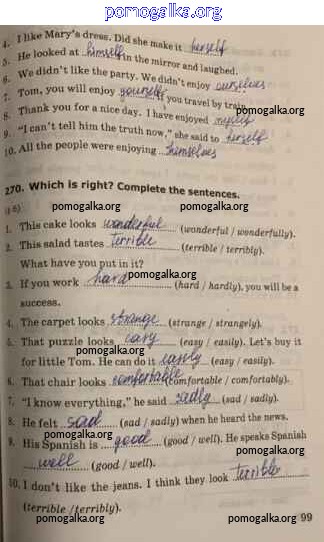 pomogalka.org
4. I like Mary's dress. Did she make it herself
5. He looked at himself in the mirror and laughed.
6. We didn't like the party. We didn't enjoy ourselves
7. Tom, you will enjoy yourself if you travel by train.
pomogalka.org pomogalka.org
8. Thank you for a nice day. I have enjoyed myself
9. "I can't tell him the truth now," she said to herself
10. All the people were enjoying themselves
270. Which is right? Complete the sentences.
pomogalka.org pomogalka.org
1. This cake looks wonderful (wonderful / wonderfully).
2. This salad tastes terrible (terrible / terribly).
What have you put in it?
pomogalka.org
3. If you work hard (hard / hardly), you will be a
success.
4. The carpet looks strange (strange / strangely).
5. That puzzle looks easy (easy / easily). Let's buy it
pomogalka.org
for little Tom. He can do it easily (easy / easily).
6. That chair looks comfortable (comfortable / comfortably).
7. "I know everything," he said sadly (sad / sadly).
8. He felt sad (sad / sadly) when he heard the news.
pomogalka.org
9. His Spanish is good (good / well). He speaks Spanish
well (good / well).
10. I don't like the jeans. I think they look terrible
(terrible / terribly).
99
pomogalka.org pomogalka.org